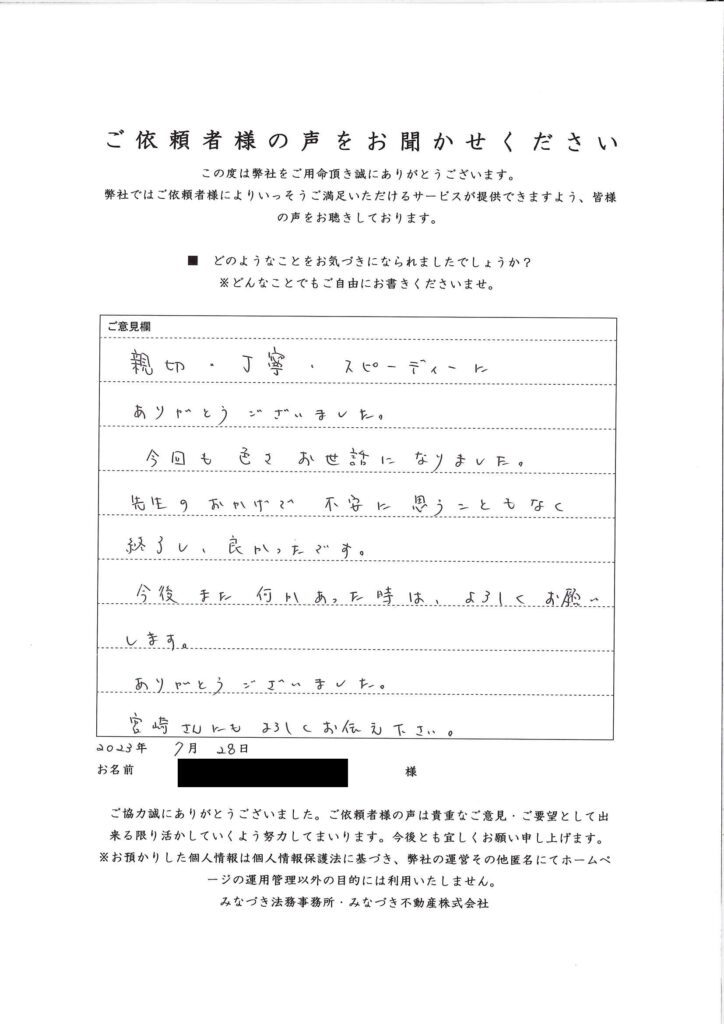 ご依頼者様の声をお聞かせください
この度は弊社をご用命頂き誠にありがとうございます。
弊社ではご依頼者様によりいっそうご満足いただけるサービスが提供できますよう、皆様
の声をお聴きしております。
■ どのようなことをお気づきになられましたでしょうか？
※どんなことでもご自由にお書きくださいませ。
ご意見欄
親切・丁寧・スピーディーに
ありがとうございました。
今回も色々お世話になりました。
先生のおかげで不安に思うこともなく
終了し、良かったです。
今後また何かあった時は、よろしくお願い
します。
ありがとうございました。
宮崎さんにもよろしくお伝え下さい。
2023年 7月 28日
お名前 様
ご協力誠にありがとうございました。ご依頼者様の声は貴重なご意見・ご要望として出
来る限り活かしていくよう努力してまいります。今後とも宜しくお願い申し上げます。
※お預かりした個人情報は個人情報保護法に基づき、弊社の運営その他匿名にてホームペ
ージの運用管理以外の目的には利用いたしません。
みなづき法務事務所・みなづき不動産株式会社